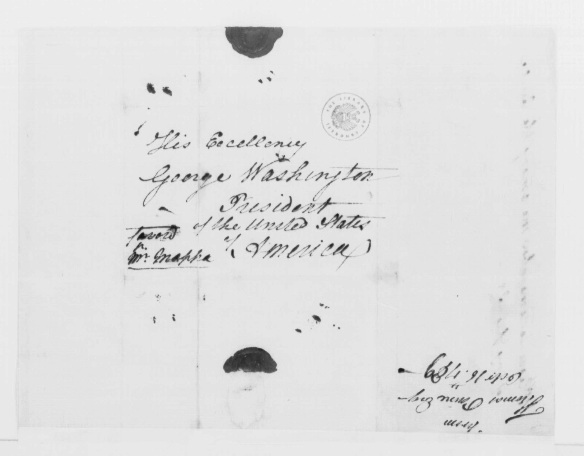 His Excellency
George Washington
President
of the United States
of America
favord
Mr. Mappa
From
Esqr